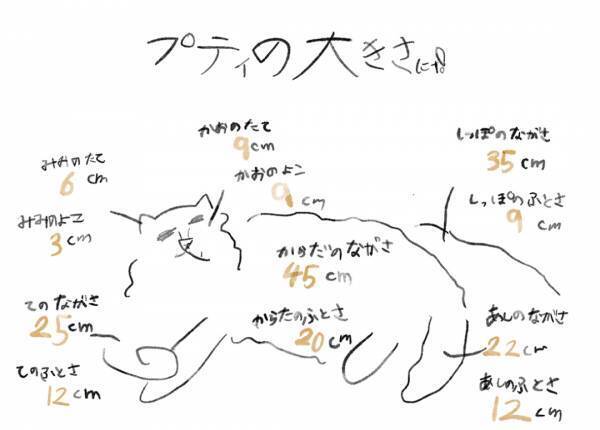 プティの大きさ
かおのたて
9cm
かおのよこ
9cm
みおのたて
6 cm
みみのよこ
3cm
しっぽのながさ
35cm
しっぽのふとさ
9cm
からだのながさ
45cm
からたのふとさ
20cm
てのながさ
25cm
てのふとさ
12cm
あしのながさ
22cm
あしのふとさ
12cm